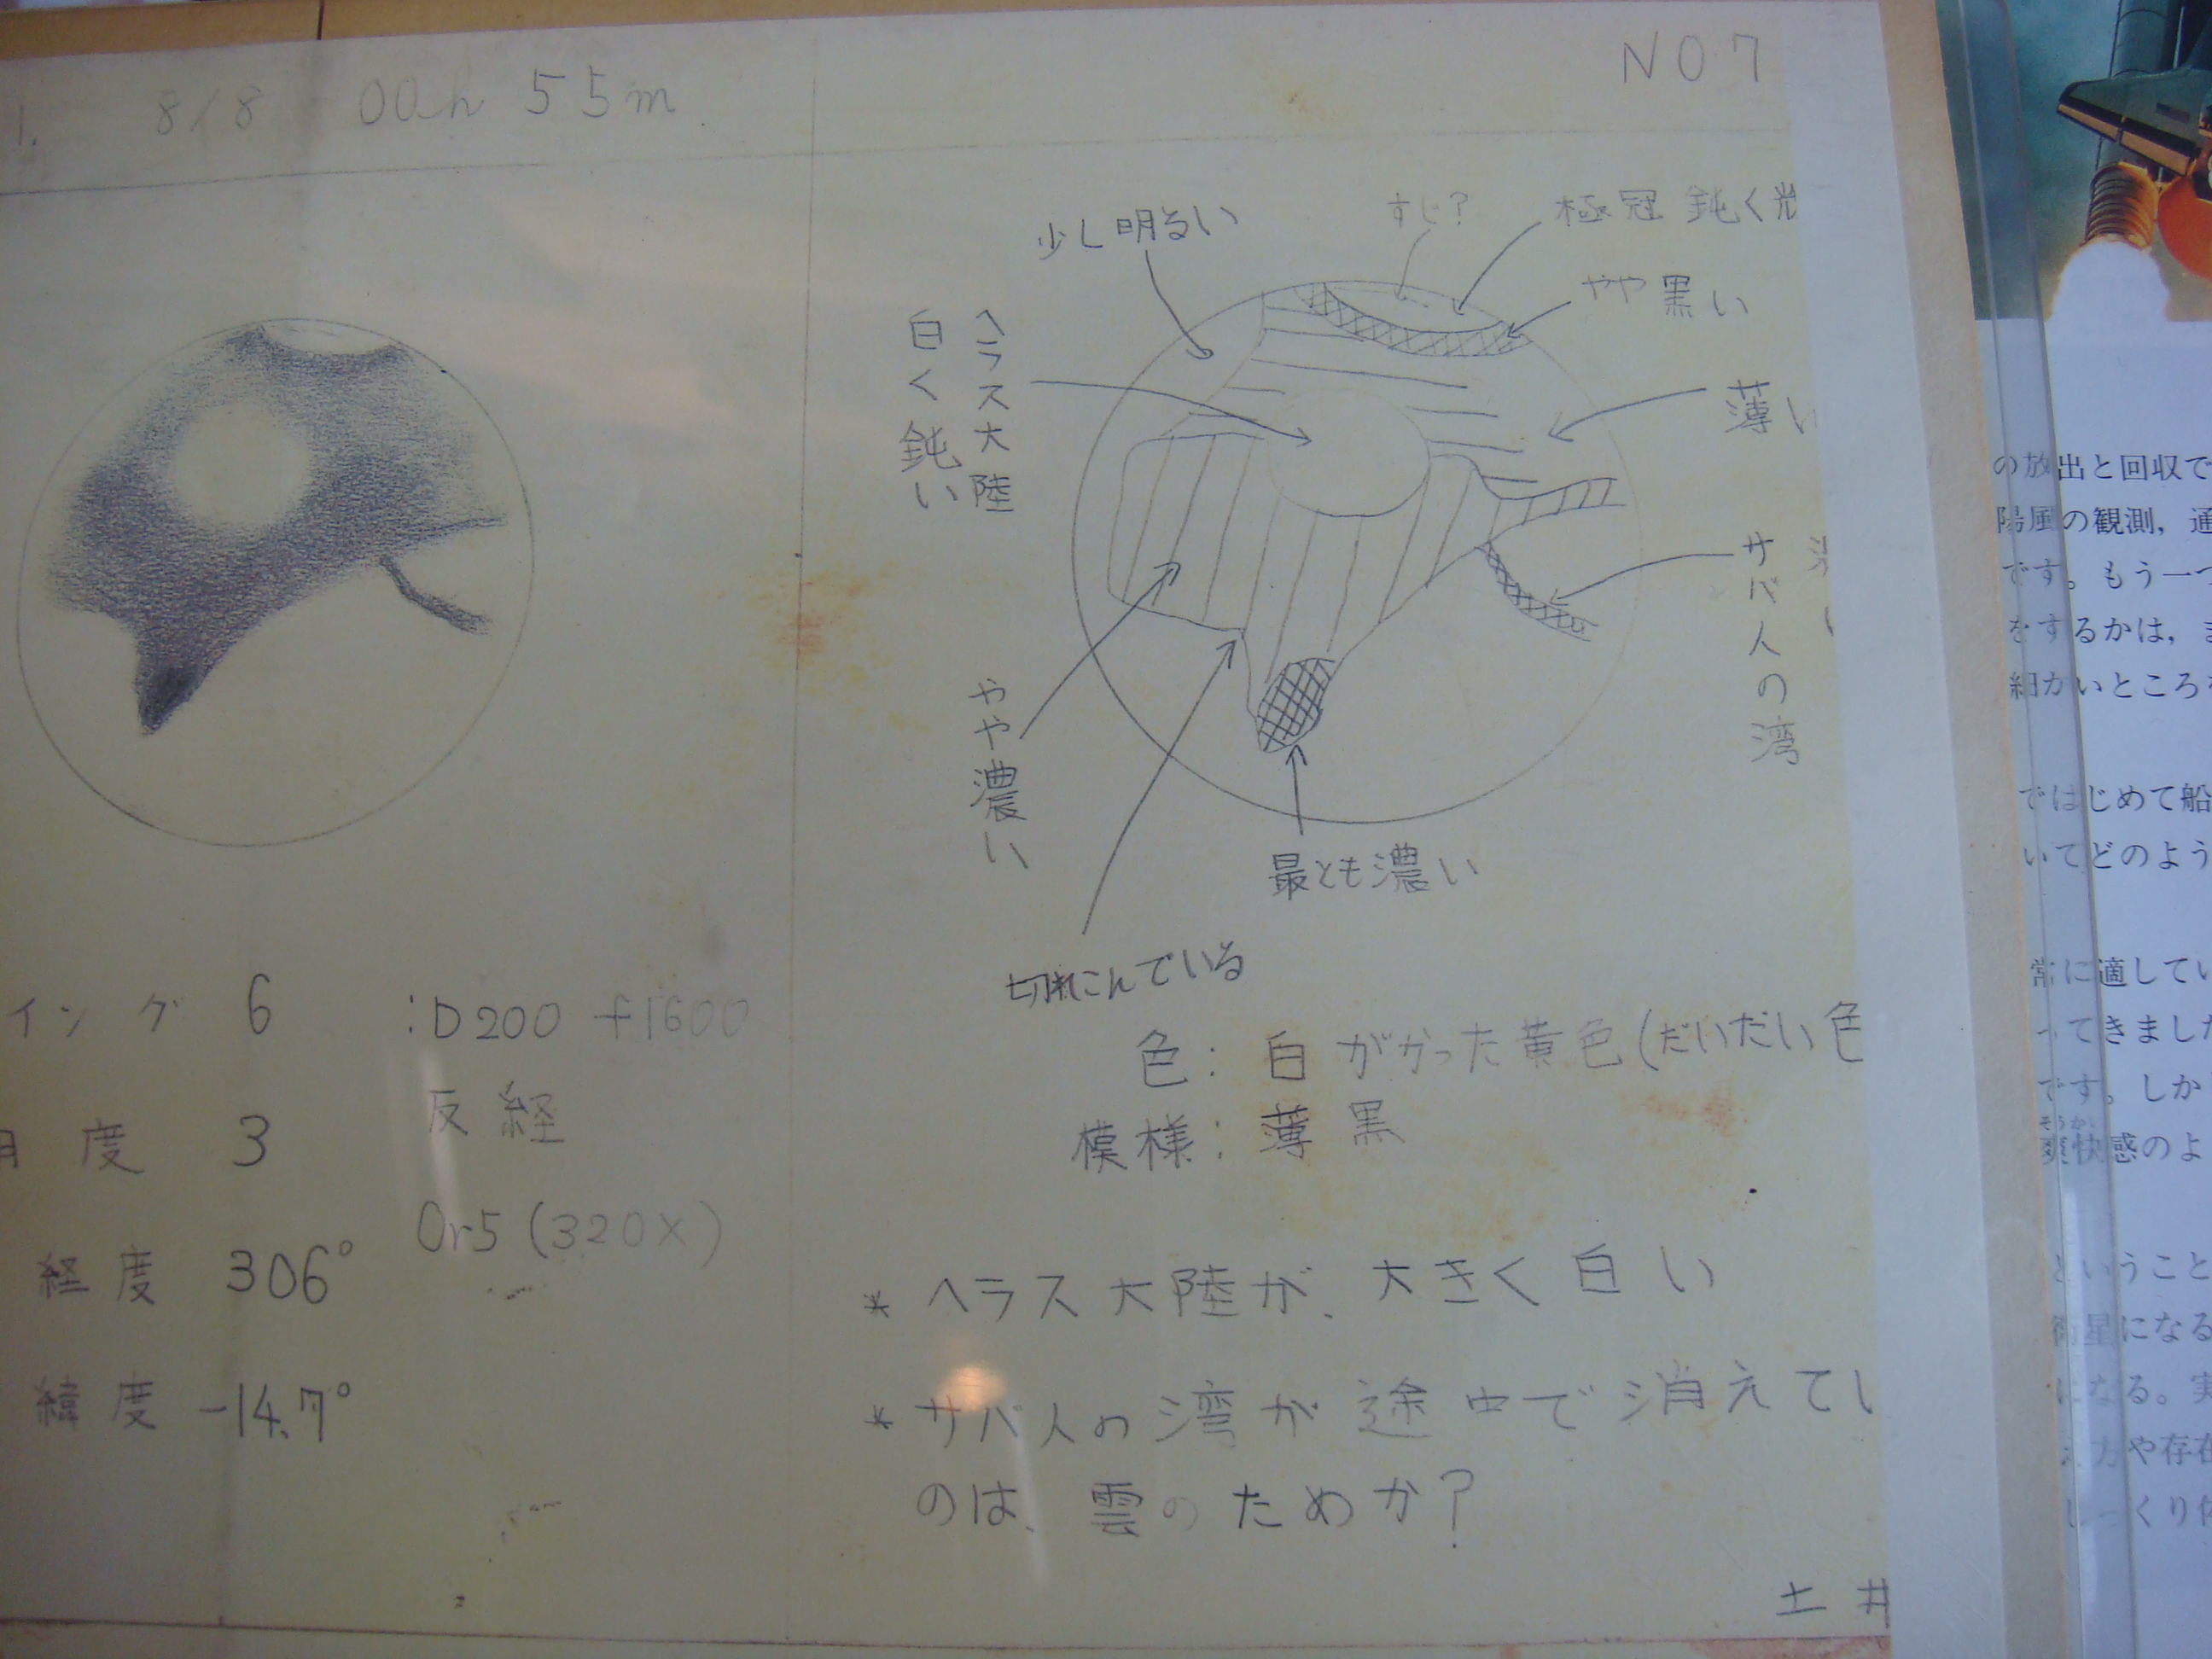 1. 8/8 00h 55m
NO 7
少し明るい
すじ?
極冠 鈍く光
やや黒い
ヘラス大陸
白く鈍い
薄い
サバ人の湾
やや濃い
最とも濃い
切れこんでいる
イング 6 :D200 f1600
反経
度 3
Or5 (320X)
経度 306°
緯度 -14.7°
色: 白がかった黄色(だいだい色
模様: 薄黒
* ヘラス大陸が、大きく白い
* サバ人の湾が途中で消えてい
のは、雲のためか?
土井
の放出と回収で
陽風の観測,通
です。もう一つ
をするかは,ま
細かいところを
ではじめて船
いてどのよう
常に適してい
ってきました
です。しか
そうかい
爽快感のよ
ということ
衛星になる
になる。実
え方や存在
じっくり体